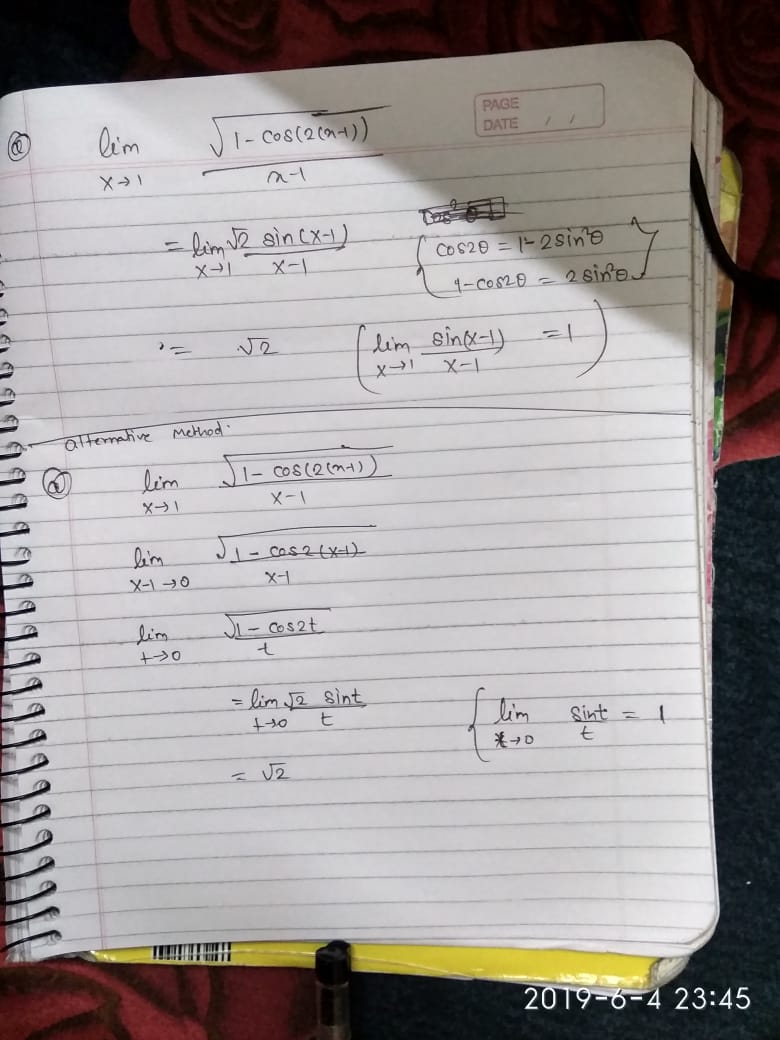 PAGE
DATE / /
Q lim x→1 √(1 - cos(2(x-1))) / x-1
= lim x→1 √2 sin(x-1) / x-1 { cos2θ = 1-2sin²θ
1-cos2θ = 2sin²θ }
= √2 ( lim x→1 sin(x-1) / x-1 = 1 )
alternative Method.
Q lim x→1 √(1 - cos(2(x-1))) / x-1
lim x-1→0 √(1 - cos2(x-1)) / x-1
lim t→0 √(1 - cos2t) / t
= lim t→0 √2 sint / t { lim t→0 sint / t = 1
= √2
2019-6-4 23:45